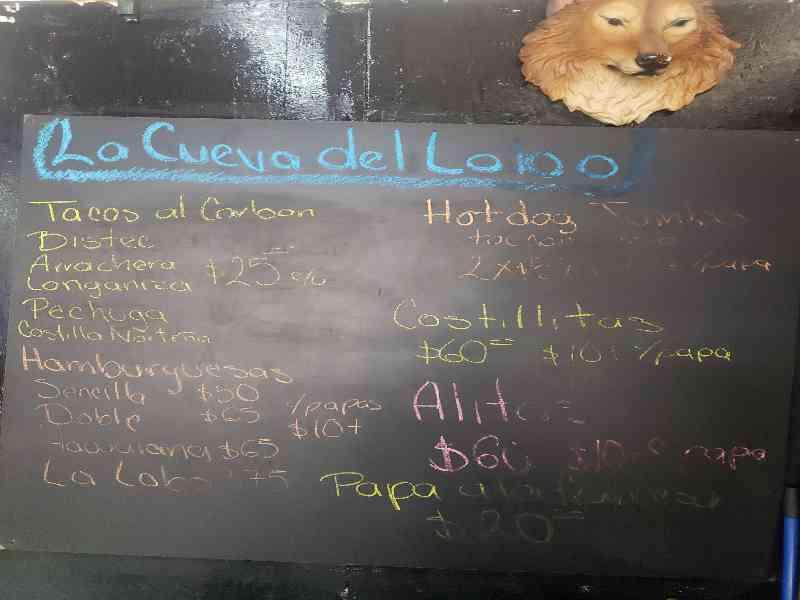 La Cueva del Lobo
Tacos al Carbon
Bistec
Arrachera $25 c/u
Longaniza
Pechuga
Costilla Norteña
Hamburguesas
Sencilla $50
Doble $65 c/papas
$10+
Hawaiiana $65
La Lobo 75
Hotdog Jumbo
Costillitas
$60 $10+ c/papa
Alitas
$60 papa
Papa a la francesa
$20